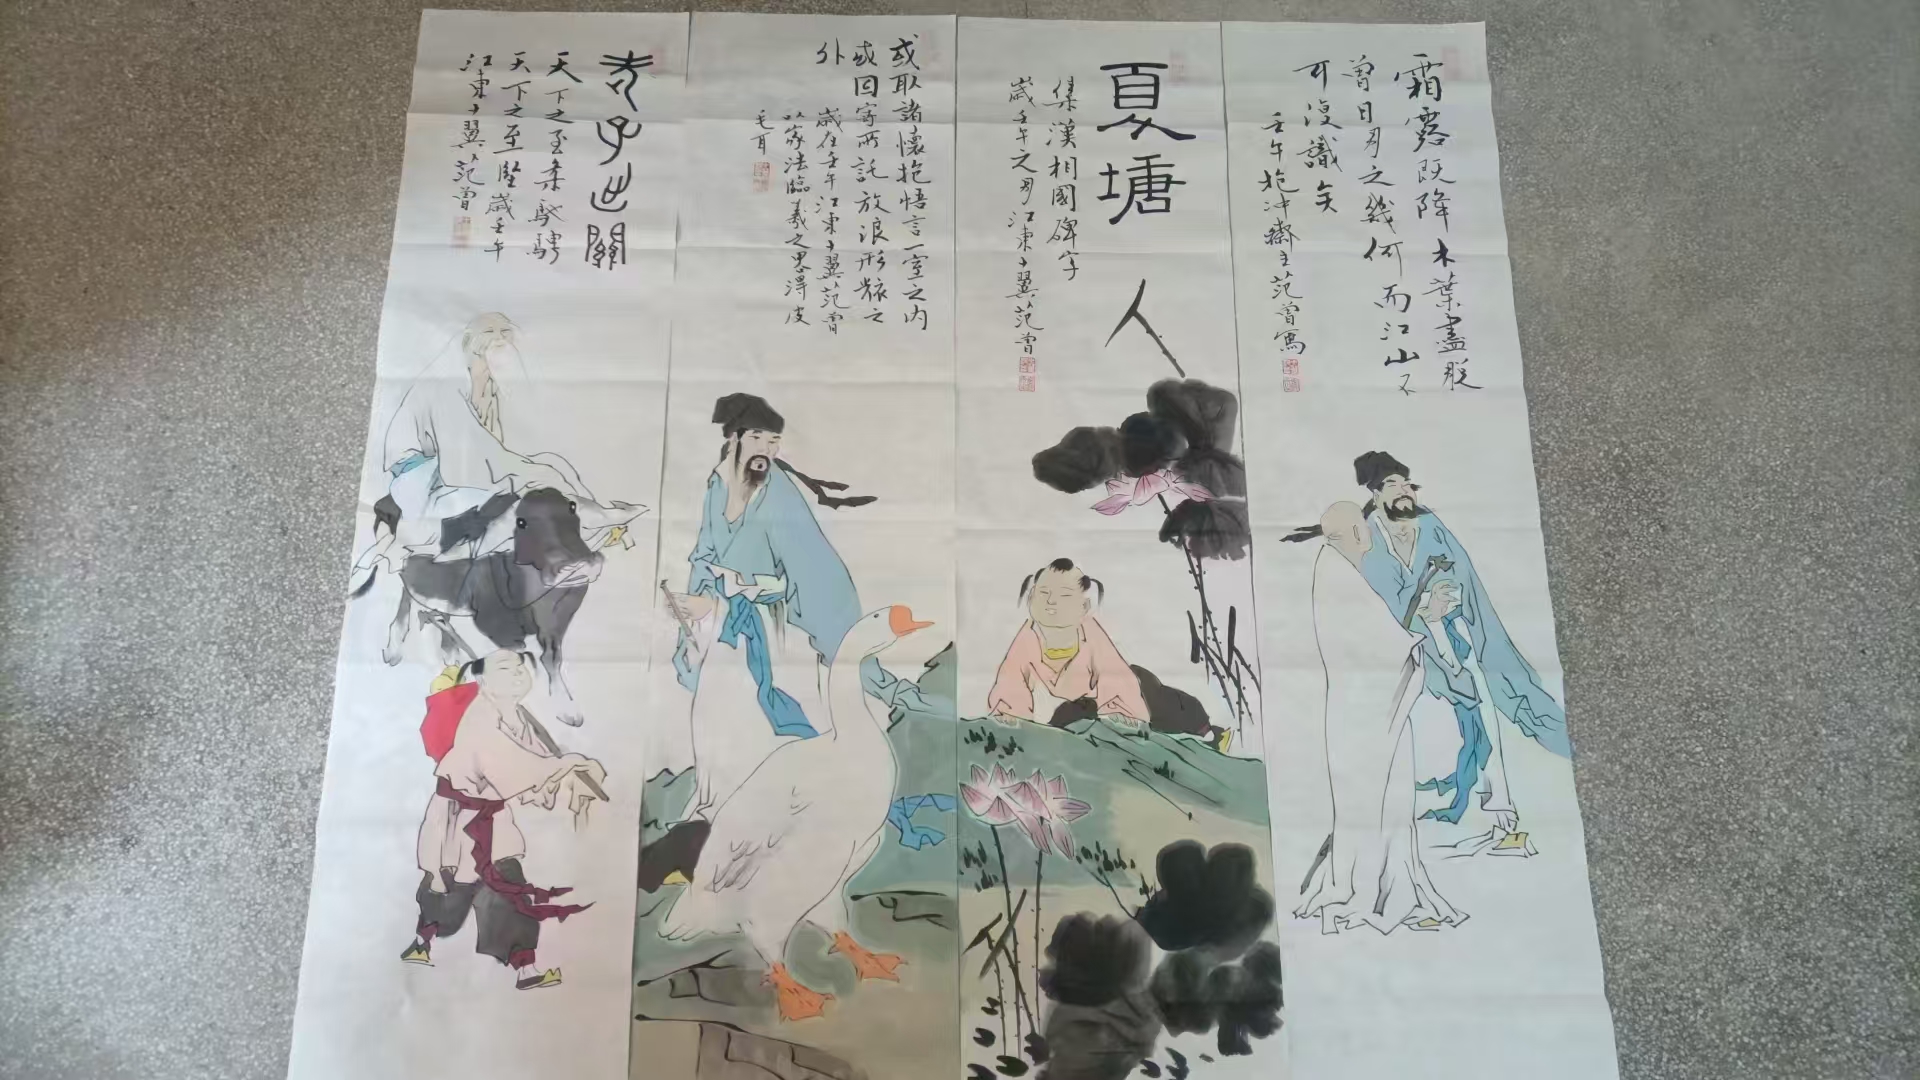 霜露既降木葉盡脫
曾日月之幾何而江山不
可復識矣
壬午抱沖齋主范曾寫
夏塘
集漢相國碑字
歲壬午之月江東十翼范曾
或取諸懷抱悟言一室之内
或因寄所託放浪形骸之
外
歲在壬午江東十翼范曾
以家法臨羲之思得皮
毛耳
老子出關
天下之至柔馳騁
天下之至堅歲壬午
江東十翼范曾